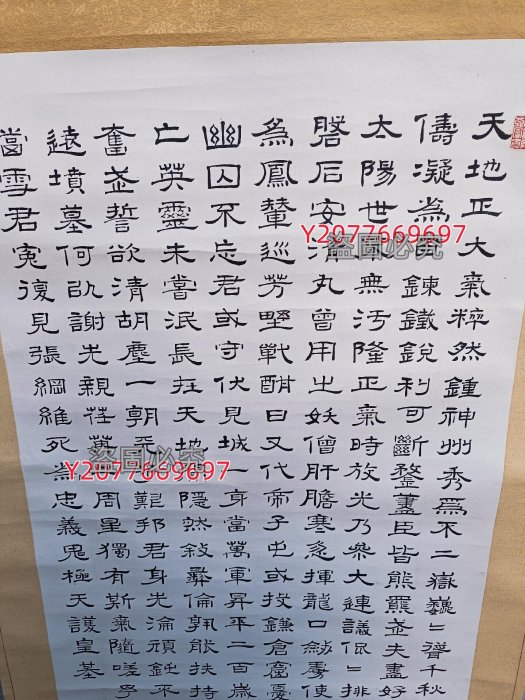 天地正大氣粹然鍾神州秀爲不二嶽巍〻聳千秋
儔凝為鍊鐵銳利可斷鍪藎臣皆熊羆夫盡好
太陽世無汚隆正氣時放光乃參大連議侃〻排
磐石安清丸曾用之妖僧肝膽寒忽揮龍口劒虜使
為鳳輦巡芳野戰酣日又代帝子屯或投鎌倉窟憂
幽囚不忘君或守伏見城一身當萬軍昇平二百歲
亡英靈未嘗泯長在天地隱然敘彝倫孰能扶持
奮並誓欲清胡塵一朝天艱邦君身先淪頑鈍不
遠墳墓何以謝先親荏苒周星獨有斯氣隨嗟予
當雪君冤復見張綱維死為忠義鬼極天護皇基
Y2077669697
盜圖必究
盜圖必究
Y2077669697